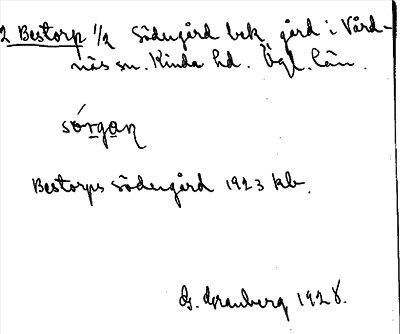 2 Bestorp 1/2 Södergård bek. gård i Vård-
näs sn. Kinda hd. Ögl. län.
sórgan
Bestorps Södergård 1923 kb.
G. Granberg 1928.